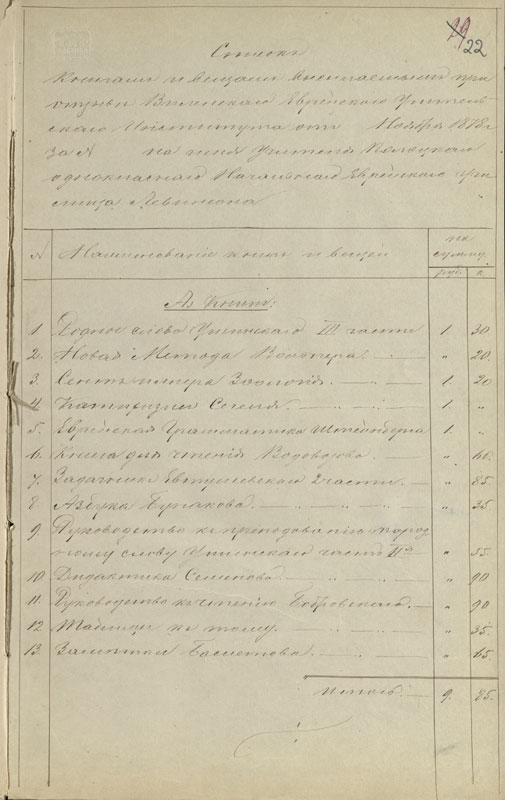 19 22
Списокъ
книгамъ и вещамъ высылаемымъ при
отзывѣ Виленскаго Еврейскаго Учитель-
скаго Института отъ Ноября 1878 г.
за № на имя Учителя Полоцкаго
однокласснаго Начальнаго Еврейскаго Учи-
лища Левинсона
№ Наименованіе книгъ и вещей на сумму.
руб. к.
А) Книги:
1. Родное слово Ушинскаго III части 1. 30
2. Новая Метода Волпера „ 20.
3. Сентъ-илера Зоологія. 1. 20
4. Катихизисъ Сегеля. 1. „
5. Еврейская Грамматика Штейнберга 1. „
6. Книга для чтенія Водовозова. „ 60.
7. Задачникъ Евтушевскаго 2 части. „ 85
8. Азбука Бунакова. „ 35
9. Руководство къ преподованію по род-
ному слову Ушинскаго часть II я „ 55
10. Дидактика Семенова. „ 90
11. Руководство къ чтенію Бобровскаго. „ 90
12. Таблицы къ тому. „ 35.
13. Замѣтки „ 65.
Итого: 9. 85.